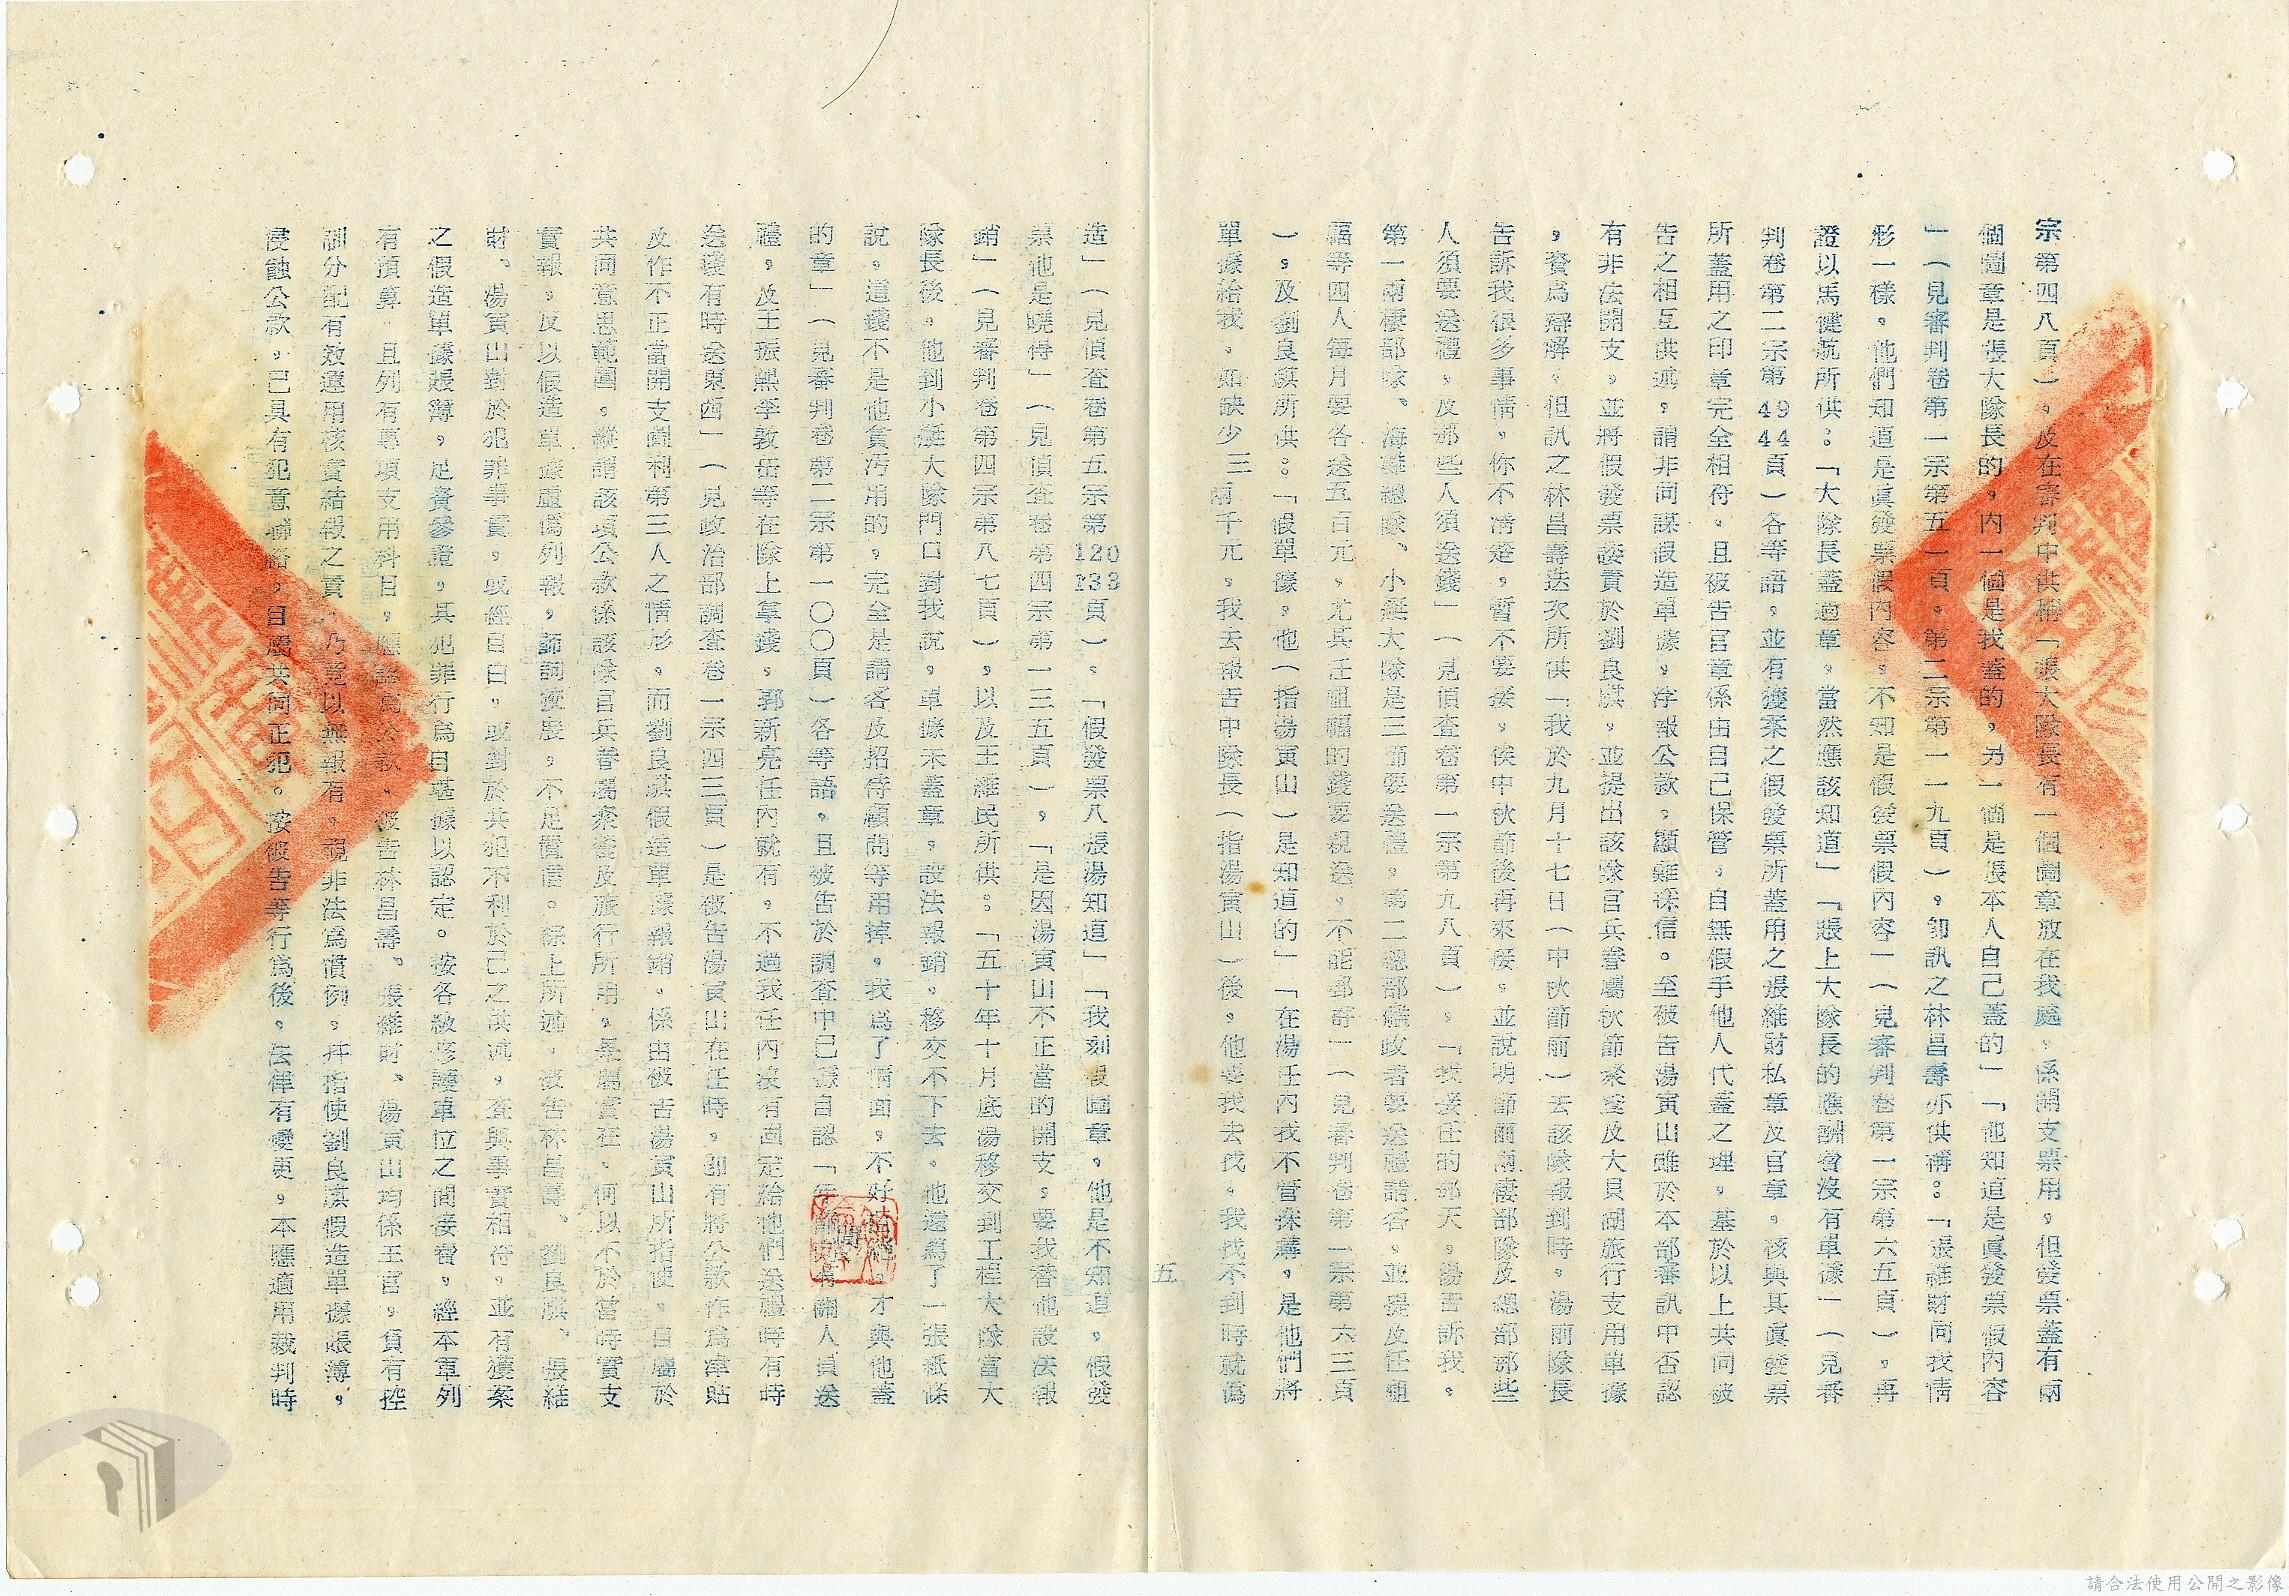 宗第四八頁），及在審判中供稱「張大隊長有一個圖章放在我處，係開支票用，但發票蓋有兩
個圖章是張大隊長的，內一個是我蓋的，另一個是張本人自己蓋的」「他知道是眞發票假內容
」（見審判卷第一宗第五一頁，第二宗第一一九頁），卽訊之林昌壽亦供稱：「張維財同我情
形一樣，他們知道是眞發票假內容，不知是假發票假內容」（見審判卷第一宗第六五頁），再
證以馬健航所供：「大隊長蓋過章，當然應該知道」「賬上大隊長的應酬餐沒有單據」（見審
判卷第二宗第49 44頁）各等語，並有獲案之假發票所蓋用之張維財私章及官章，核與其眞發票
所蓋用之印章完全相符，且被告官章係由自己保管，自無假手他人代蓋之理，基於以上共同被
告之相互供述，謂非同謀假造單據，浮報公款，顯難採信。至被告湯寅山雖於本部審訊中否認
有非法開支，並將假發票諉責於劉良騏，並提出該隊官兵眷屬秋節聚餐及大貝湖旅行支用單據
，資爲辯解，但訊之林昌壽迭次所供「我於九月十七日（中秋節前）去該隊報到時，湯前隊長
告訴我很多事情，你不清楚，暫不要接，俟中秋節後再來接，並說明節前兩棲部隊及總部那些
人須要送禮，及那些人須送錢」（見偵查卷第一宗第九八頁），「我接任的那天，湯告訴我，
第一兩棲部隊、海灘總隊、小艇大隊是三節要送禮，第二總部驗收者要送禮請客，並提及任祖
福等四人每月要各送五百元，尤其任祖福的錢要親送，不能郵寄」（見審判卷第一宗第六三頁
），及劉良騏所供：「假單據，他（指湯寅山）是知道的」「在湯任內我不管採購，是他們將
單據給我，如缺少三兩千元，我去報告中隊長（指湯寅山）後，他要我去找，我找不到時就僞
五
造」（見偵查卷第五宗第120 133頁），「假發票八張湯知道」「我刻假圖章，他是不知道，假發
票他是曉得」（見偵查卷第四宗第一三五頁），「是因湯寅山不正當的開支，要我替他設法報
銷」（見審判卷第四宗第八七頁），以及王維民所供：「五十年十月底湯移交到工程大隊當大
隊長後，他到小艇大隊門口對我說，單據未蓋章，設法報銷，移交不下去，他還寫了一張紙條
說，這錢不是他貪污用的，完全是請客及招待顧問等用掉，我爲了情面，不好拒絕，才與他蓋
的章」（見審判卷第二宗第一〇〇頁）各等語，且被告於調查中已據自認「年節送有關人員送
禮，及王振熙李敦岳等在隊上拿錢，郭新亮任內就有，不過我任內沒有固定給他們送禮時有時
送錢有時送東西」（見政治部調查卷一宗四三頁）是被告湯寅山在任時，卽有將公款作爲津貼
及作不正當開支圖利第三人之情形，而劉良騏假造單據報銷，係由被告湯寅山所指使，自屬於
共同意思範圍，縱謂該項公款係該隊官兵眷屬聚餐及旅行所用，果屬實在，何以不於當時實支
實報，反以假造單據虛僞列報，飾詞狡展，不足置信。綜上所述，被告林昌壽、劉良騏、張維
財、湯寅山對於犯罪事實，或經自白，或對於共犯不利於己之供述，查與事實相符，並有獲案
之假造單據賬簿，足資參證，其犯罪行爲自堪據以認定。按各級修護單位之間接費，經本軍列
有預算，且列有專項支用科目，應認爲公款，被告林昌壽、張維財、湯寅山均係主官，負有控
制分配有效運用核實結報之責，乃竟以無報有，視非法爲慣例，并指使劉良騏假造單據賬簿，
侵蝕公款，已具有犯意聯絡，自屬共同正犯。按被告等行爲後，法律有變更，本應適用裁判時
請合法使用公開之影像